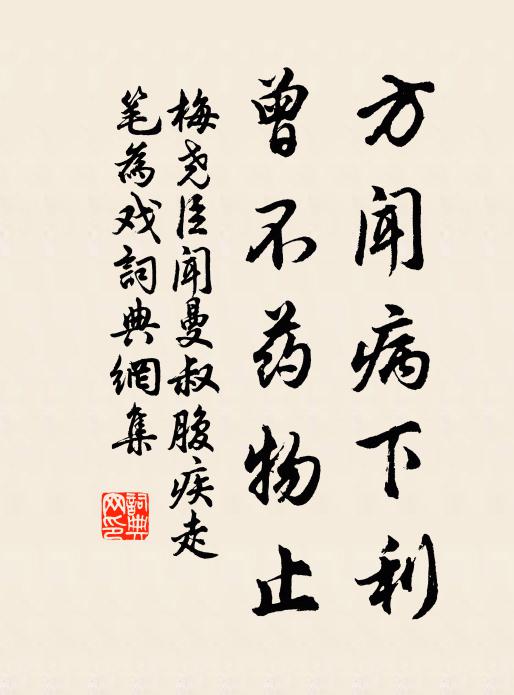 方闻病下利
曾不药物止
梅尧臣闻曼叔腹疾走
笔为戏詞典網集
詞典
网印